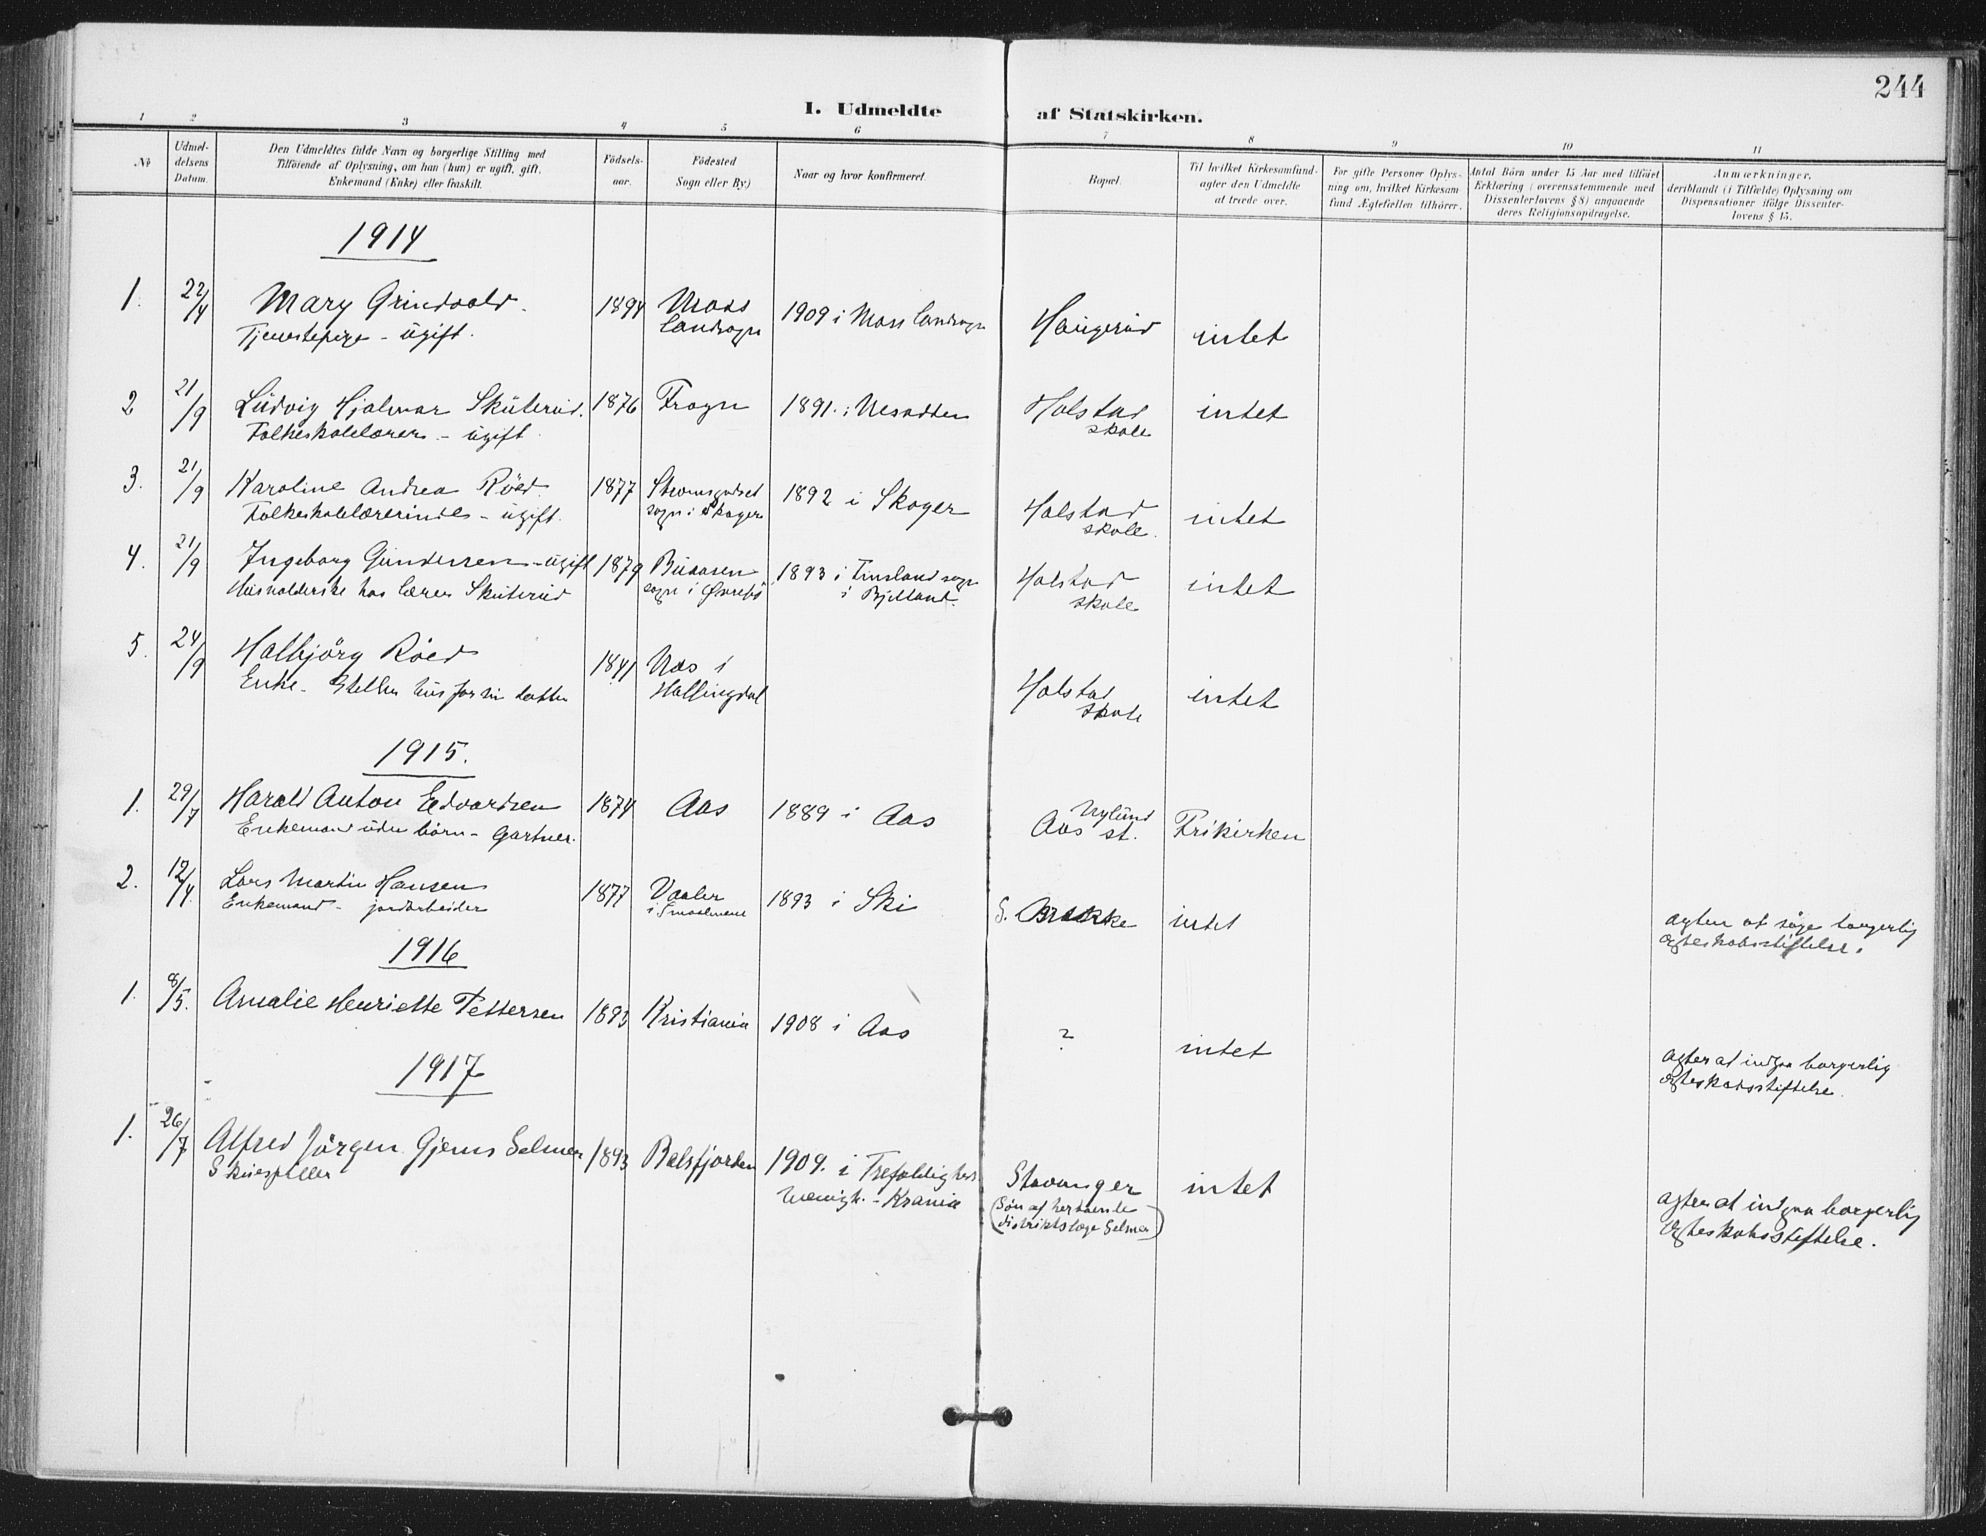 244
I. Udmeldte af Statskirken.
1 2 3 4 5 6 7 8 9 10 11
№
Udmel-
delsens
Datum.
Den Udmeldtes fulde Navn og borgerlige Stilling med
Tilföiende af Oplysning, om han (hun) er ugift, gift,
Enkemand (Enke) eller fraskilt.
Födsels-
aar.
Födested
Sogn eller By.)
Naar og hvor konfirmeret.
Bopæl.
Til hvilket Kirkesamfund
agter den Udmeldte
at træde over.
For gifte Personer Oplys-
ning om, hvilket Kirkesam
fund Ægtefællen tilhörer.
Antal Börn under 15 Aar med tilföiet
Erklæring (overensstemmende med
Dissenterlovens § 8) angaaende
deres Religionsopdragelse.
Anmærkninger,
deriblandt (i Tilfælde) Oplysning om
Dispensationer ifölge Dissenter-
lovens § 15.
1914
1. 22/4 Mary Grindvold. 1894 Moss 1909 i Moss landsogn Haugerud intet
Tjenestepige - ugift. landsogn
2 21/9 Ludvig Hjalmar Skuterud. 1876 Frogn 1891 i Nesodden Holstad intet
Folkeskolelærer - ugift. skole
3. 21/9 Karoline Andrea Röed. 1877 Strömsgodset 1892 i Skoger Holstad intet
Folkeskolelærerinde - ugift. sogn i Skoger skole.
4. 21/9 Ingeborg Gundersen - ugift 1879 1893 i Finsland sogn Holstad intet
Husholderske hos lærer Skuterud sogn i Øvrebö i Bjelland. skole
5. 24/9 Halbjörg Röed 1841 Nes i Holstad intet
Enke - Steller hus for sin datter Hallingdal skole
1915.
1. 29/7 Harald Anton Edvardsen 1874 Aas 1889 i Aas Nylund Frikirken
Enkemand uden börn - Gartner. Aas st.
2. 12/4. Lars Martin Hansen 1877 Vaaler 1893 i Ski S. Brække intet agter at söge borgerlig
Enkemand - jordarbeider i Smaalenene ægteskabsstiftelse.
1916
1. 8/5. Amalie Henriette Pettersen 1893 Kristiania 1908 i Aas ? intet agter at indgaa borgerlig
ægteskabsstiftelse.
1917
1. 26/7 Alfred Jörgen Gjems Selmer 1893 Balsfjorden 1909. i Trefoldigheds Stavanger intet agter at indgaa borgerlig
Skuespiller menigh. - Krania (Sön af herværende ægteskabsstiftelse.
distriktslæge Selmer)